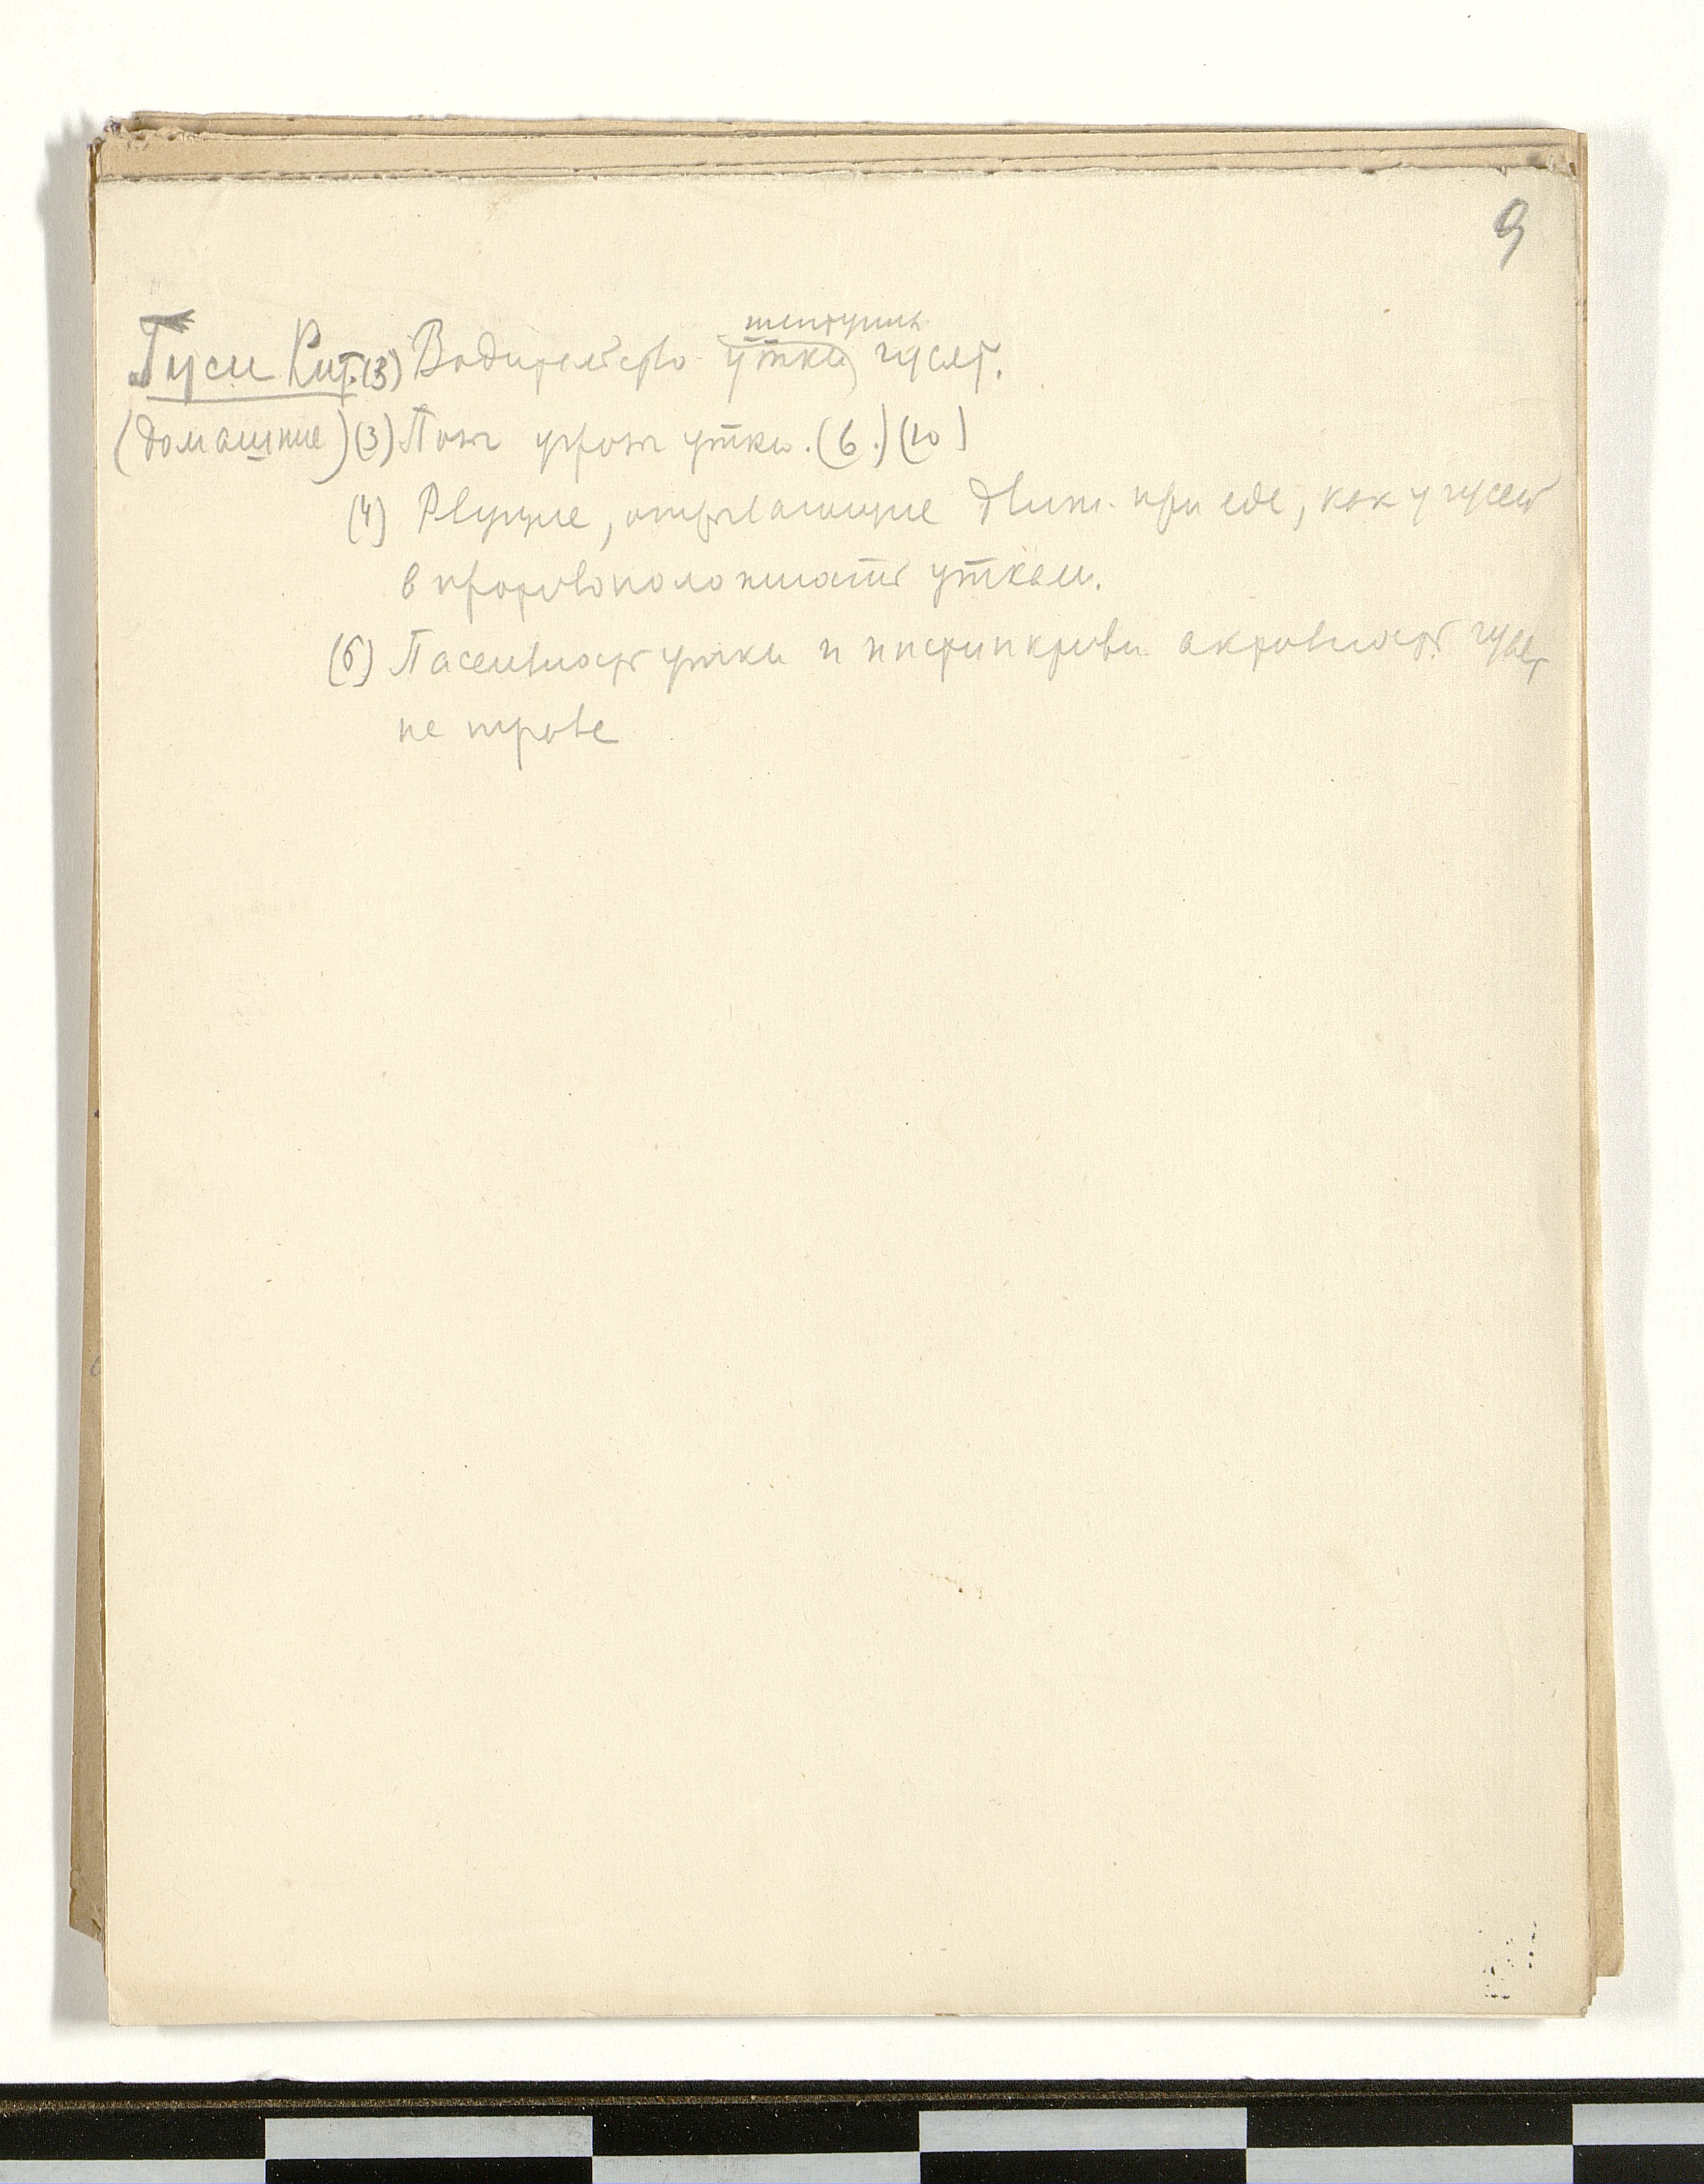 9
Гуси Кит. (3) Водительство утки гусят.
(домашние) (3) Поза угроз утки. (6.) (10)
(4) Рвущие, отрывающие движ. при еде, как у гусей
в противоположность уткам.
(5) Пассивность утки и активность гусят
не траве